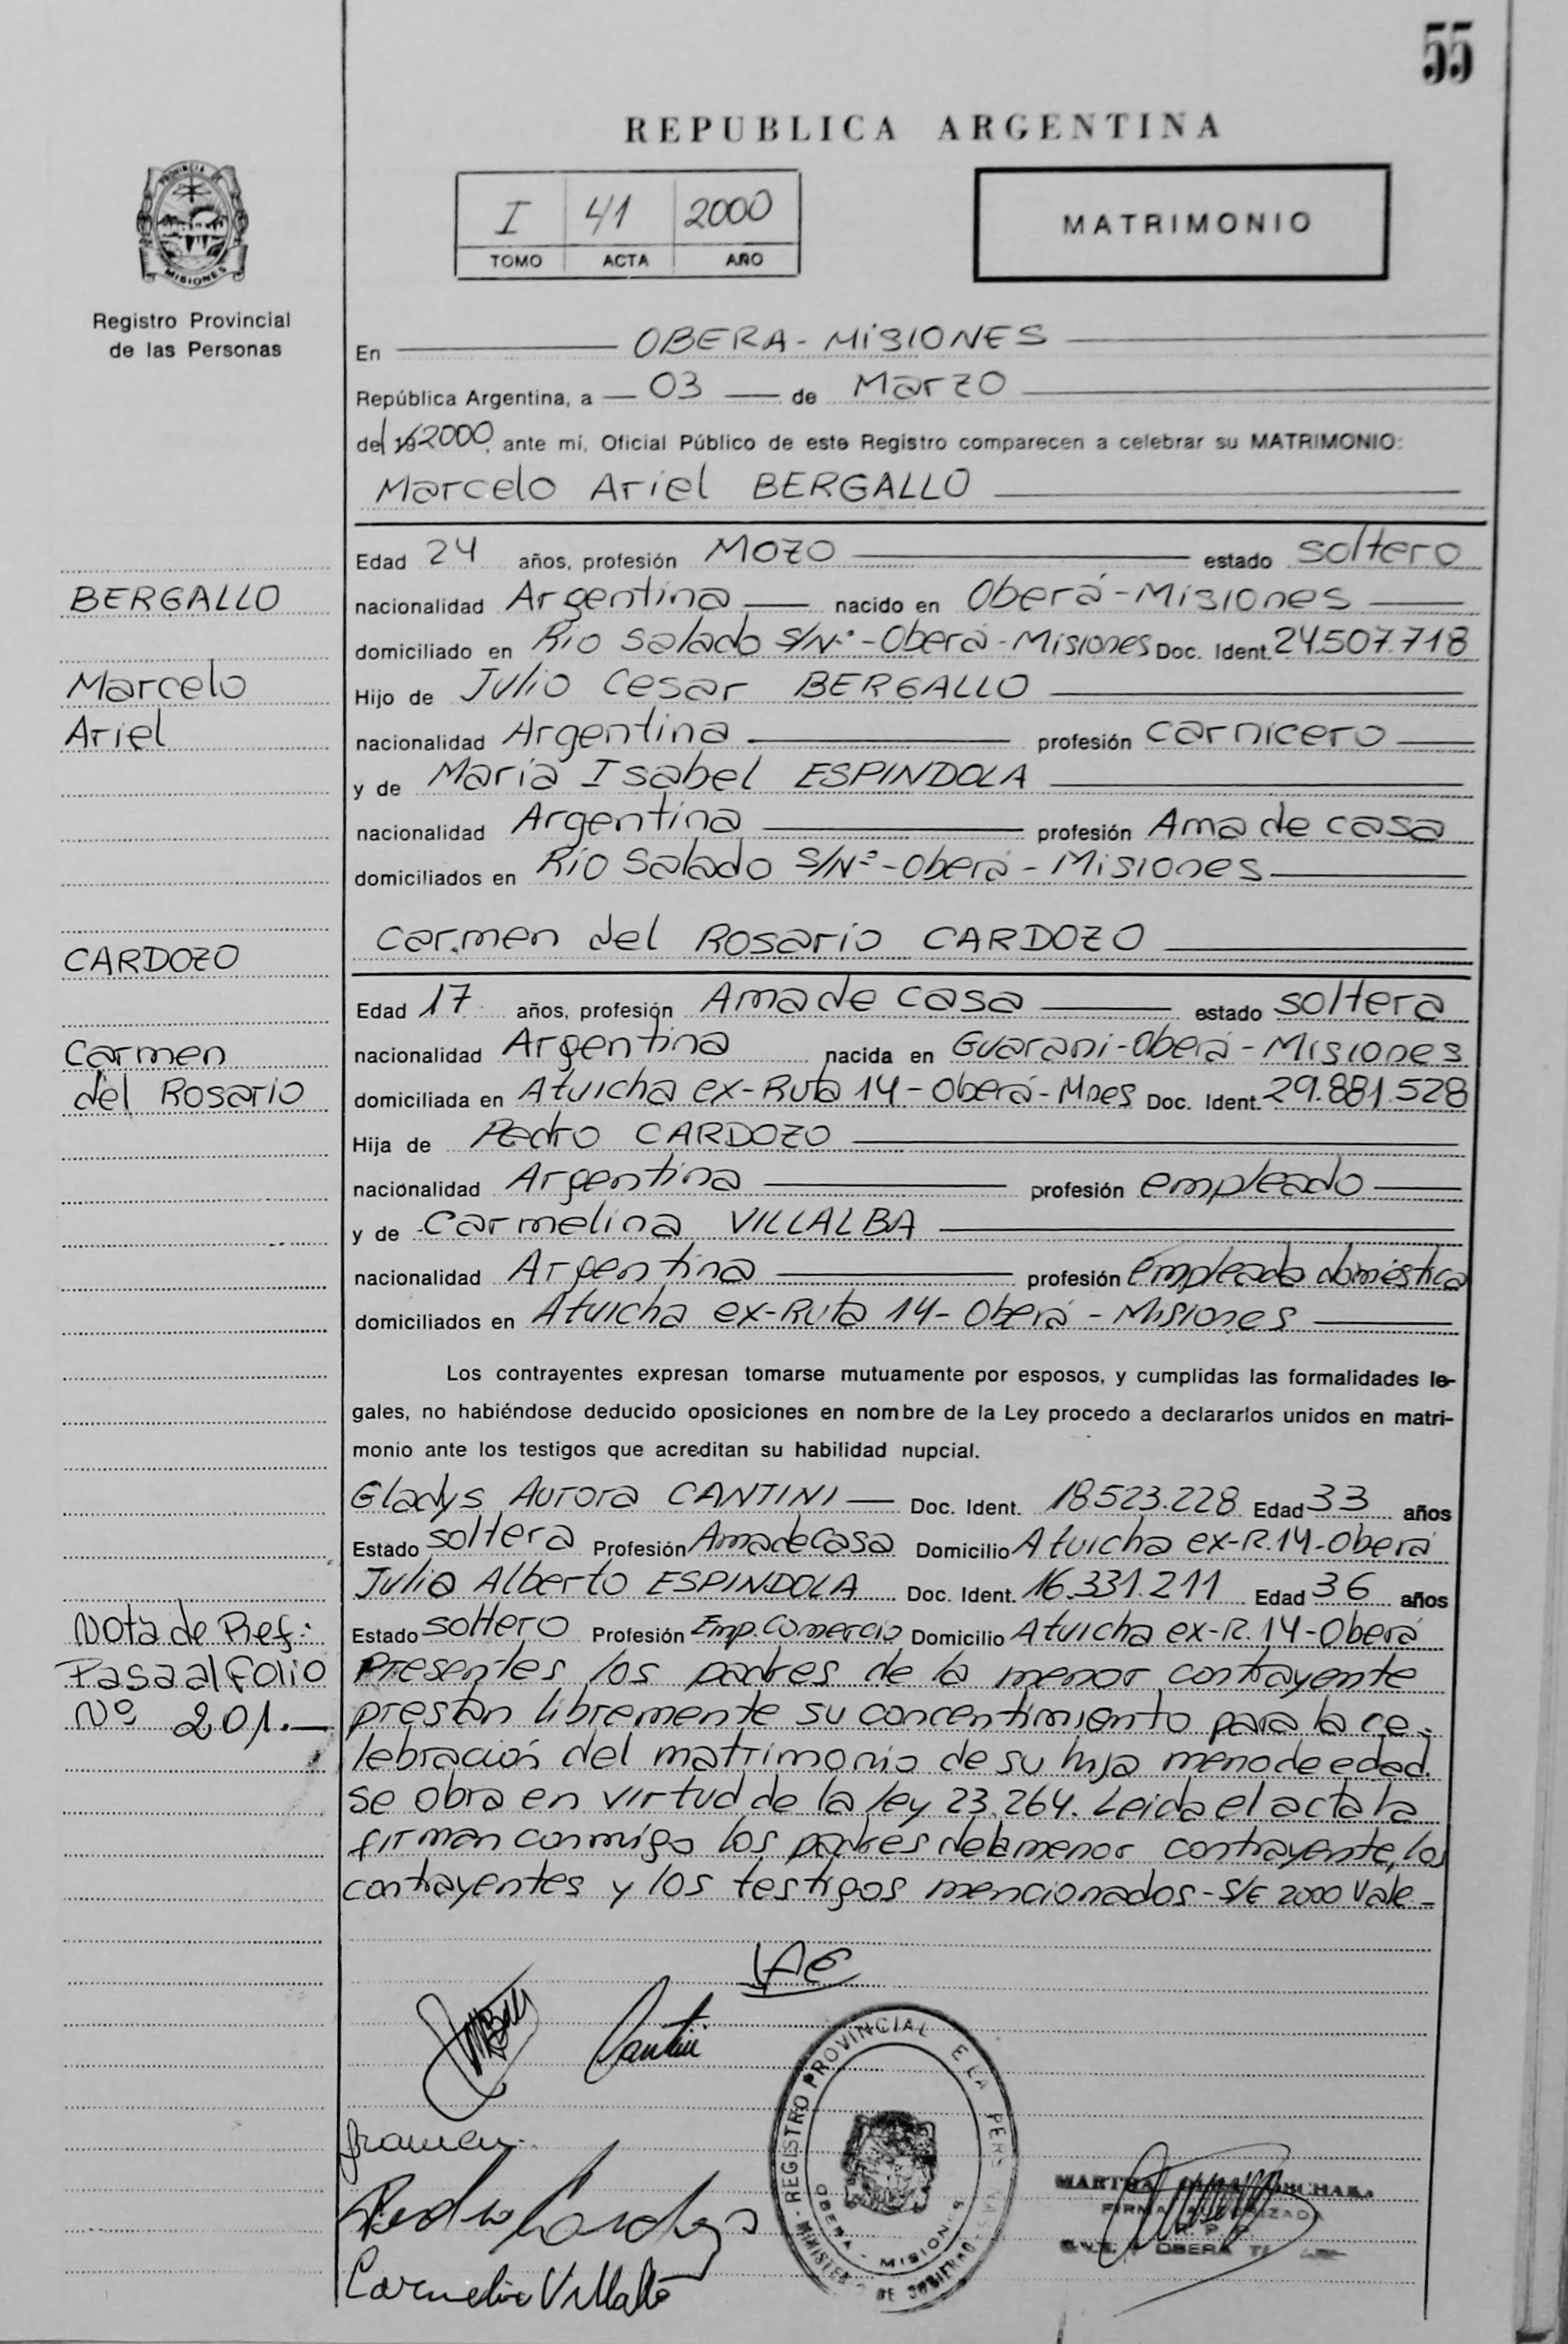 55
REPUBLICA ARGENTINA
PROVINCIA DE
MISIONES
I 41 2000
TOMO ACTA AÑO
MATRIMONIO
Registro Provincial
de las Personas
En OBERA - MISIONES
República Argentina, a 03 de Marzo
del 19 2000, ante mí, Oficial Público de este Registro comparecen a celebrar su MATRIMONIO:
Marcelo Ariel BERGALLO
Edad 24 años, profesión Mozo estado soltero
BERGALLO
nacionalidad Argentina nacido en Oberá - Misiones
domiciliado en Rio Salado S/Nº - Oberá - Misiones Doc. Ident. 24.507.718
Marcelo
Hijo de Julio Cesar BERGALLO
Ariel
nacionalidad Argentina profesión carnicero
y de María Isabel ESPINDOLA
nacionalidad Argentina profesión Ama de casa
domiciliados en Río Salado S/Nº - Oberá - Misiones
CARDOZO
Carmen del Rosario CARDOZO
Edad 17 años, profesión Ama de casa estado soltera
Carmen
nacionalidad Argentina nacida en Guarani - Oberá - Misiones
del Rosario
domiciliada en Atuicha ex-Ruta 14 - Oberá - Mnes Doc. Ident. 29.881.528
Hija de Pedro CARDOZO
nacionalidad Argentina profesión empleado
y de Carmelina VILLALBA
nacionalidad Argentina profesión empleada doméstica
domiciliados en Atuicha ex-Ruta 14 - Oberá - Misiones
Los contrayentes expresan tomarse mutuamente por esposos, y cumplidas las formalidades le-
gales, no habiéndose deducido oposiciones en nombre de la Ley procedo a declararlos unidos en matri-
monio ante los testigos que acreditan su habilidad nupcial.
Gladys Aurora CANTINI Doc. Ident. 18.523.228 Edad 33 años
Estado soltera Profesión Ama de Casa Domicilio Atuicha ex-R.14-Oberá
Julio Alberto ESPINDOLA Doc. Ident. 16.331.211 Edad 36 años
Nota de Ref.:
Estado soltero Profesión Emp. Comercio Domicilio Atuicha ex-R.14-Oberá
Pasa al Folio
Presentes los padres de la menor contrayente
Nº 201.-
prestan libremente su concentimiento para la ce-
lebración del matrimonio de su hija meno de edad.
se obra en virtud de la ley 23.264. Leida el acta la
firman conmigo los padres de la menor contrayente, los
contrayentes y los testigos mencionados - S/E 2000 Vale -
Cantini
Pedro Cardozo
REGISTRO PROVINCIAL E LA PERS NAS
OBERA - MISIONES
MINISTERIO DE GOBIERNO
MARTHA
OBERA
Carmelina Villalba